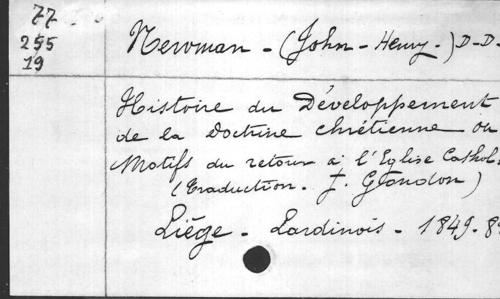 77
255
19
Newman - (John - Henry -) D - D -
Histoire du Développement
de la Doctrine chrétienne ou
Motifs du retour à l'Eglise Cathol.
(Traduction - J. Gondon)
Liège - Lardinois - 1849 - 8º